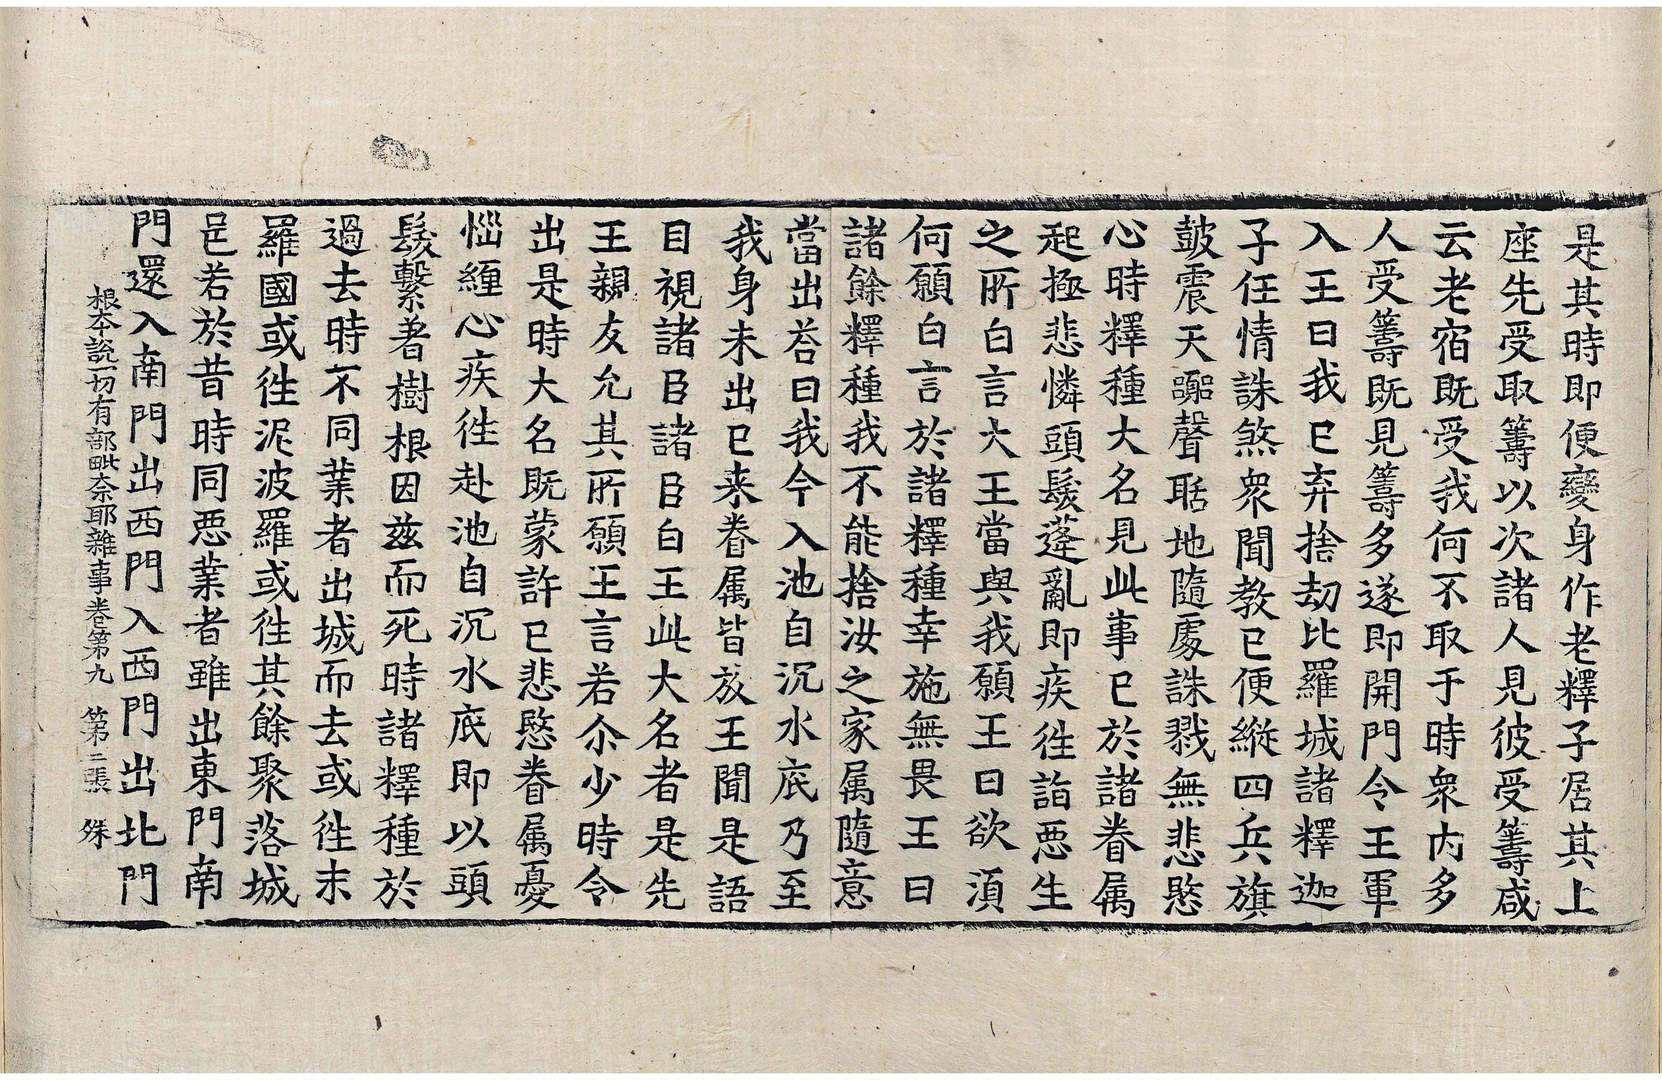 是其時即便變身作老釋子居其上
座先受取籌以次諸人見彼受籌咸
云老宿既受我何不取于時衆内多
人受籌既見籌多遂即開門令王軍
入王曰我已弃捨劫比羅城諸釋迦
子任情誅煞衆聞教已便縱四兵旗
鼓震天嘂聲聒地隨處誅戮無悲愍
心時釋種大名見此事已於諸眷属
起極悲憐頭髮蓬亂即疾徃詣悪生
之所白言大王當與我願王曰欲湏
何願白言於諸釋種幸施無畏王曰
諸餘釋種我不能捨汝之家属隨意
當出荅曰我今入池自沉水底乃至
我身未出已来眷属皆放王聞是語
目視諸臣諸臣白王此大名者是先
王親友允其所願王言若尒少時令
出是時大名既蒙許已悲愍眷属憂
惱纏心疾徃赴池自沉水底即以頭
髮繫著樹根因兹而死時諸釋種於
過去時不同業者出城而去或徃末
羅國或徃泥波羅或徃其餘聚落城
邑若於昔時同悪業者雖出東門南
門還入南門出西門入西門出北門
根本說一切有部毗奈耶雜事卷第九 第二張 殊